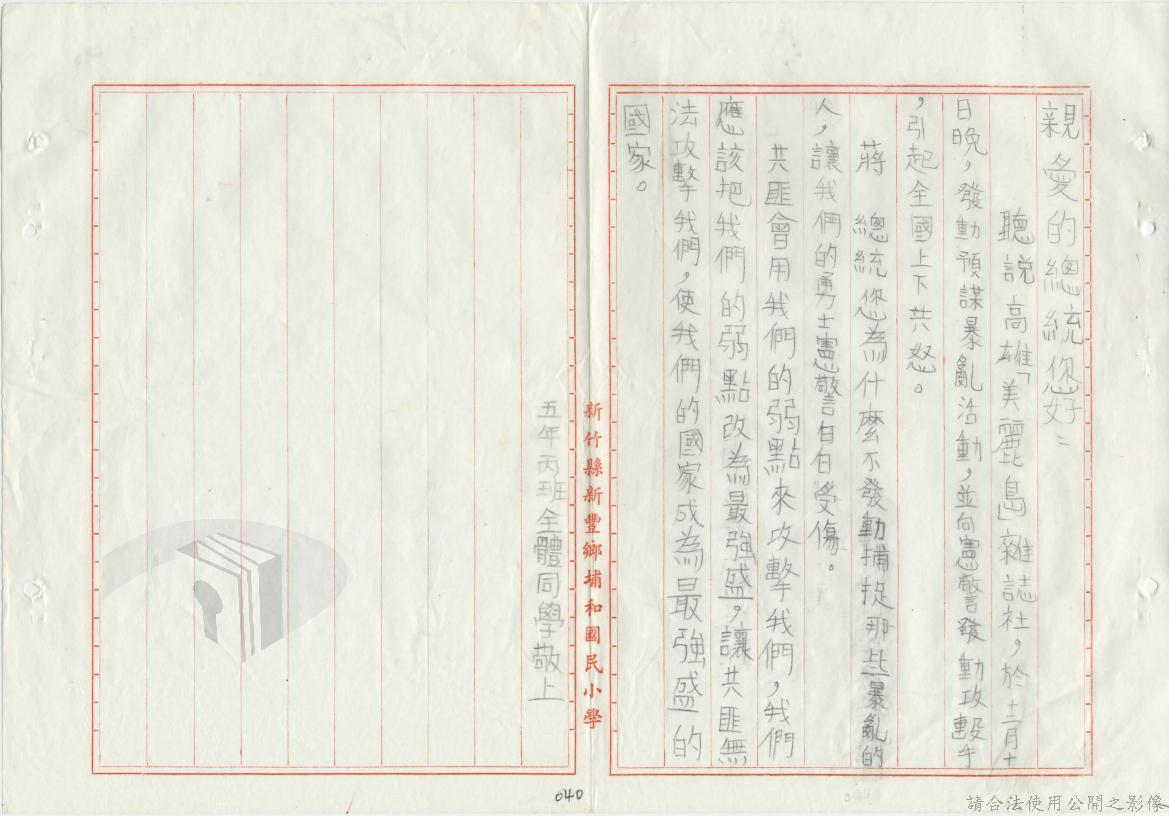 親愛的總統您好：
聽說高雄「美麗島」雜誌社，於十二月十
日晚，發動預謀暴亂活動，並向憲警發動攻擊手
，引起全國上下共怒。
蔣　總統您為什麼不發動捕捉那些暴亂的
人，讓我們的勇士憲警白白受傷。
共匪會用我們的弱點來攻擊我們，我們
應該把我們的弱點改為最強盛，讓共匪無
法攻擊我們，使我們的國家成為最強盛的
國家。
新竹縣新豐鄉埔和國民小學
五年丙班全體同學敬上
040
請合法使用公開之影像